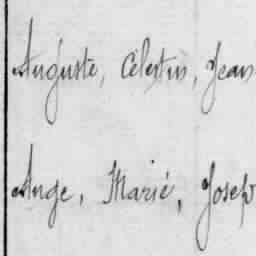 Auguste, Célestin, Jean
Ange, Marié, Josep